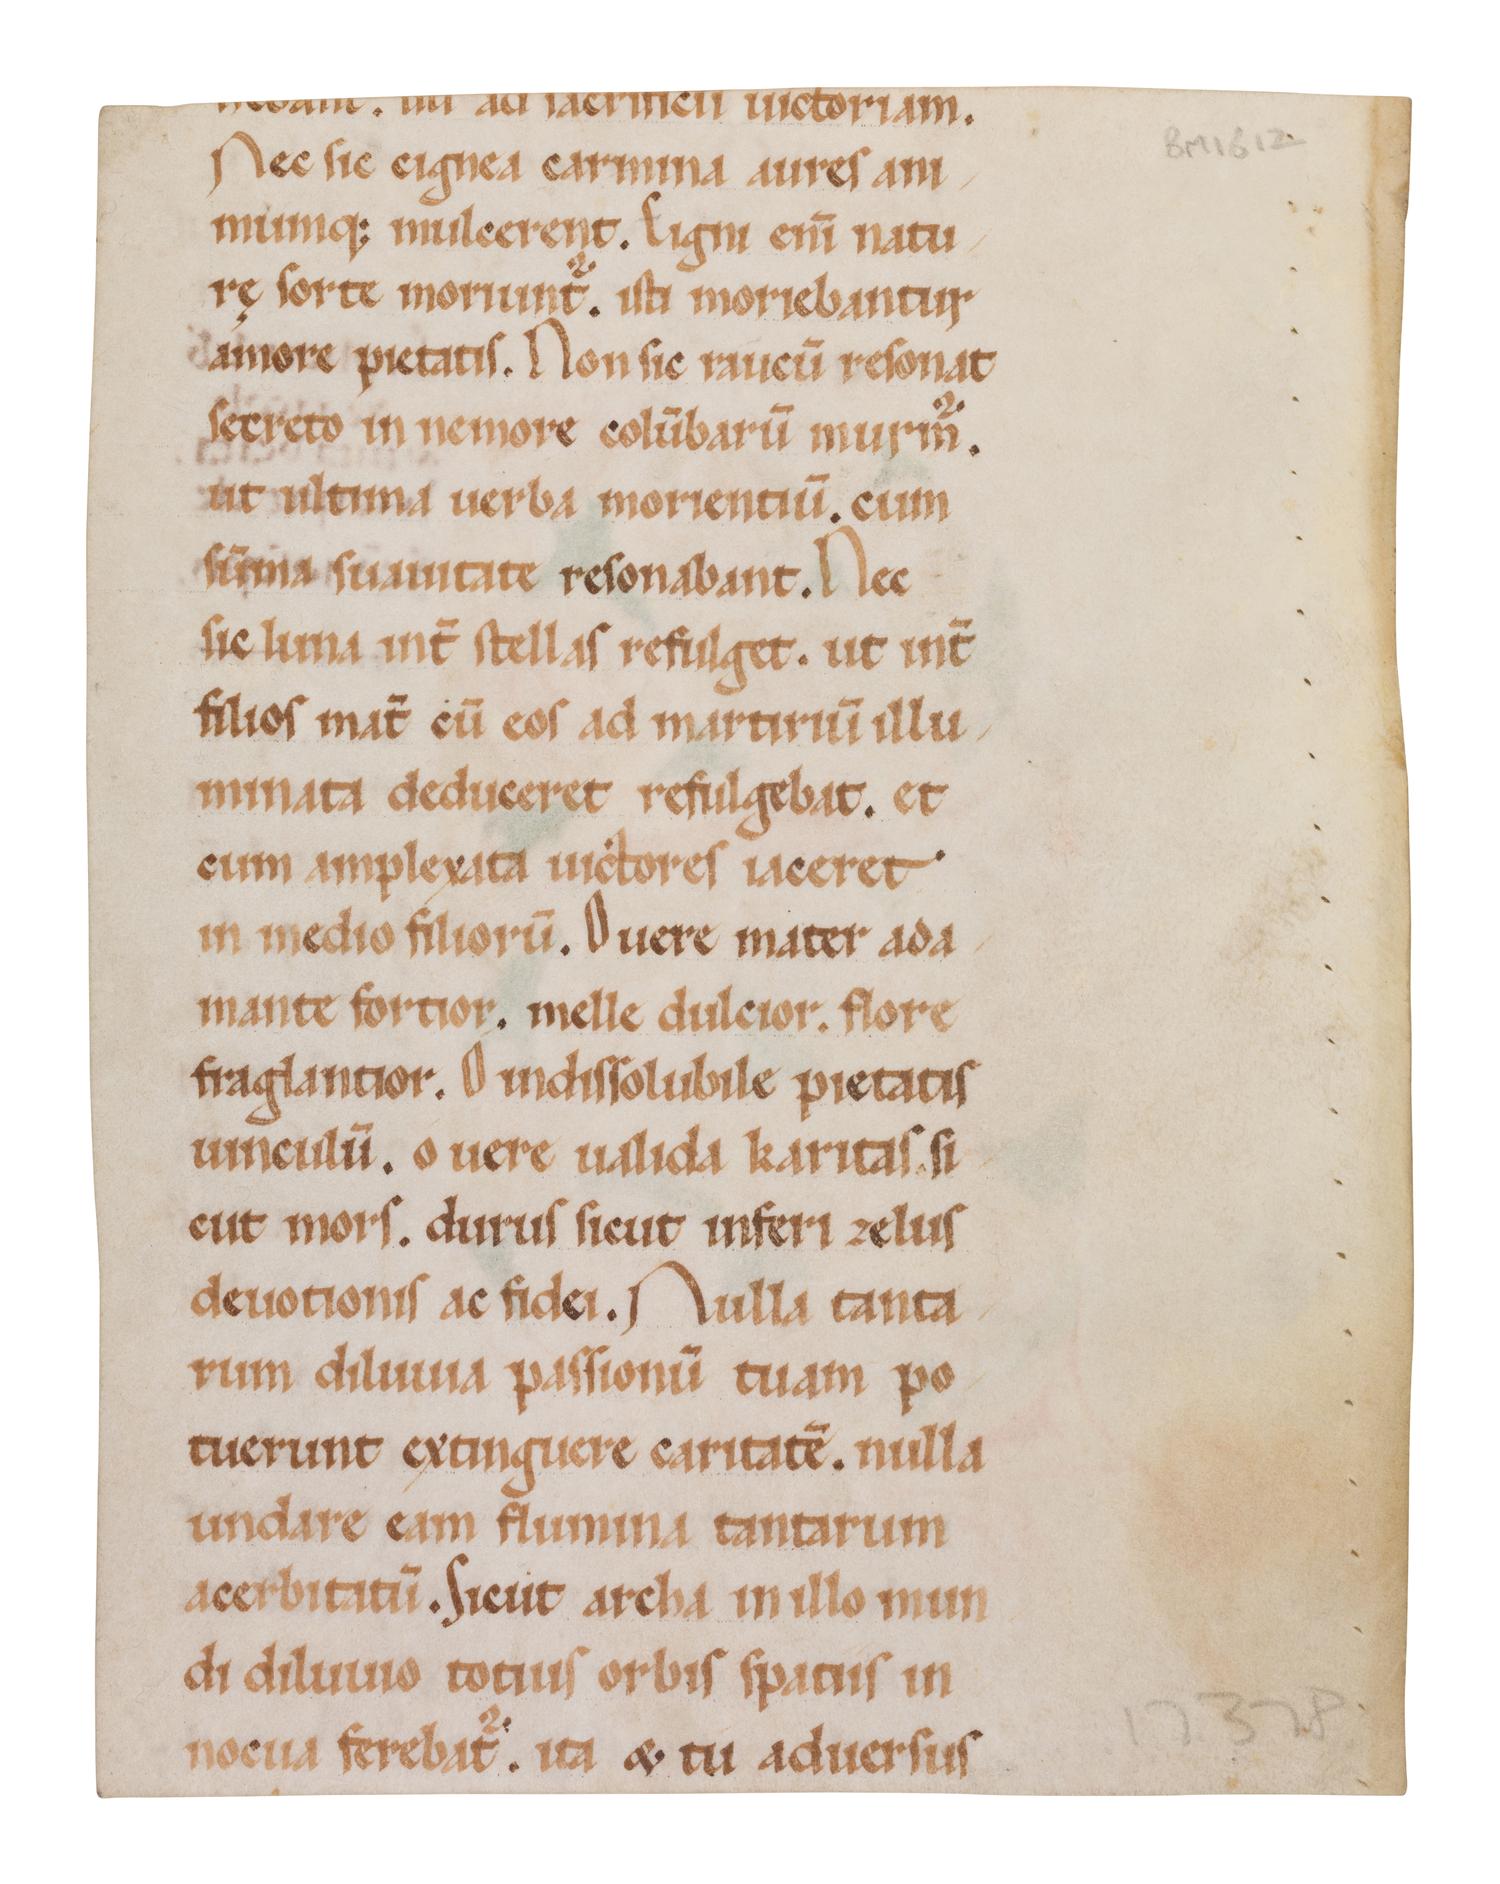 ad sacrificii uictoriam.
BM1612
Nec sic cignea carmina aures ani
mumq; mulcerent. Cigni eni̅ natu
rę sorte moriunt᷑. isti moriebantur
amore pietatis. Non sic raucū resonat
secreto in nemore colūbarū murm᷑.
ut ultima uerba morientiū. cum
sūma suauitate resonabant. Nec
sic luna int̄ stellas refulget. ut int̄
filios mat̄ cū eos ad martiriū illu
minata deduceret refulgebat. et
cum amplexata uictores iaceret
in medio filiorū. O uere mater ada
mante fortior. melle dulcior. flore
fraglantior. O indissolubile pietatis
uinculū. o uere ualida karitas. si
cut mors. durus sicut inferi zelus
deuotionis ac fidei. Nulla tanta
rum diluuia passionū tuam po
tuerunt extinguere caritatē. nulla
undare eam flumina tantarum
acerbitatū. Sicut archa in illo mun
di diluuio totius orbis spatiis in
nocua ferebat᷑. ita & tu aduersus
17378